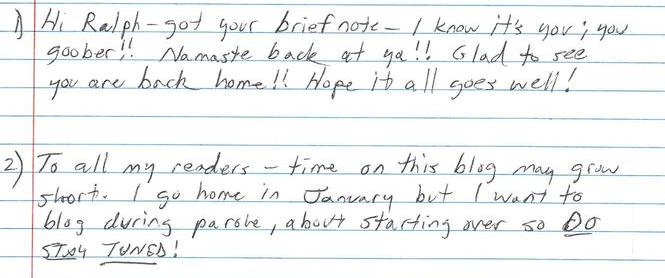 1) Hi Ralph - got your brief note - I know it's you; you
goober!! Namaste back at ya!! Glad to see
you are back home!! Hope it all goes well!
2) To all my readers - time on this blog may grow
short. I go home in January but I want to
blog during parole, about starting over so DO
STAY TUNED!